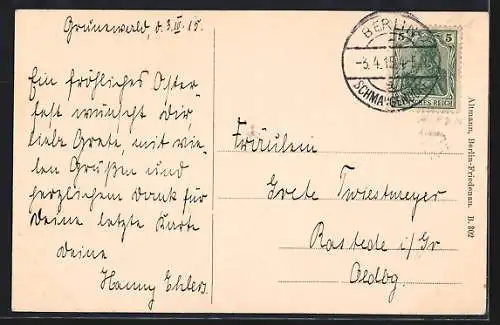 Grunewald, d. 3.IV.15.
Ein fröhliches Oster-
fest wünscht dir,
liebe Grete, mit vie-
len Grüßen und
herzlichem Dank für
Deine letzte Karte
Deine
Hanny Ehlers.
BERLIN
-3.4.15.
SCHMARGENDORF
5 5
DEUTSCHES REICH
Fräulein
Grete Twiestmeyer
Rastede i/Gr
Oldbg.
Altmann, Berlin-Friedenau. B. 302